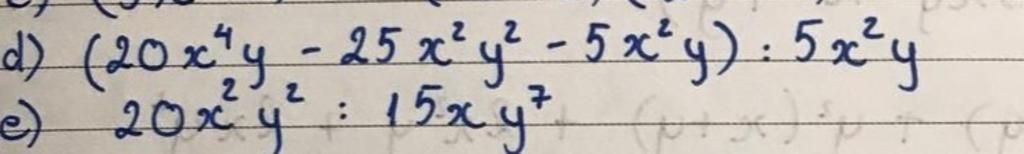 d) (20x⁴y - 25x²y² - 5x²y) : 5x²y
e) 20x²y² : 15xy⁷